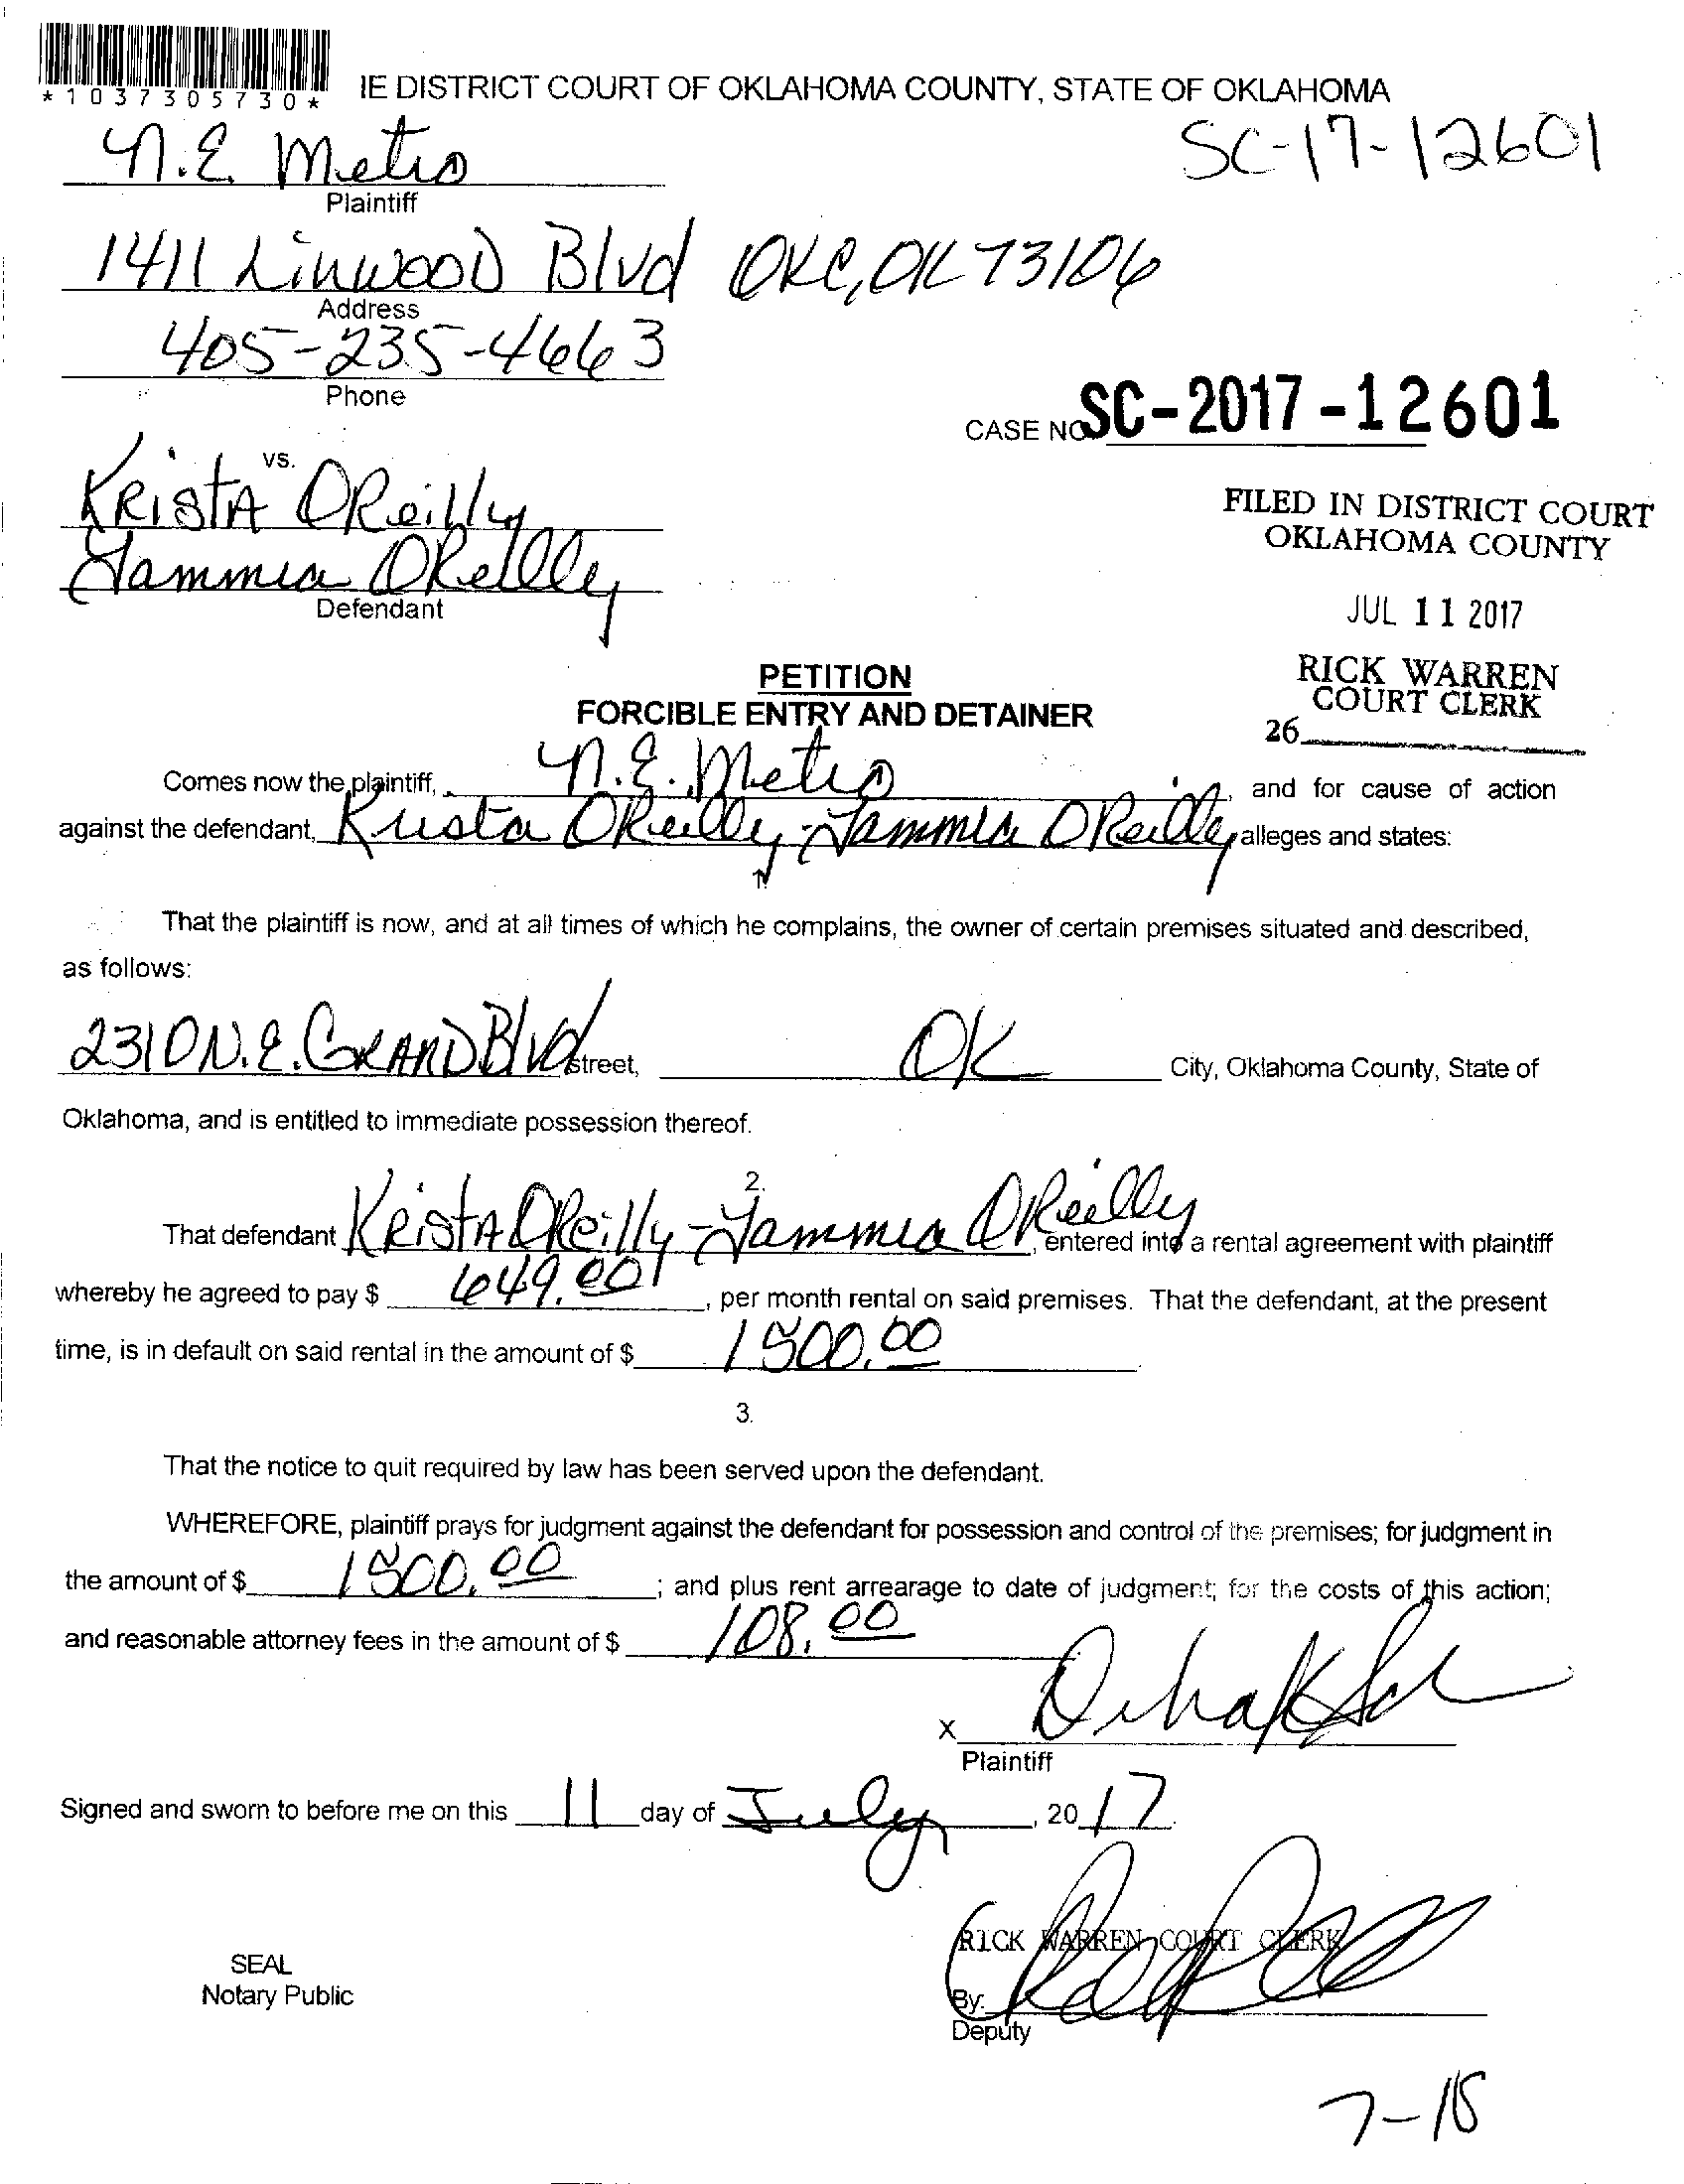 *1037305730*
IE DISTRICT COURT OF OKLAHOMA COUNTY, STATE OF OKLAHOMA
N.E. Metro
SC-17-12601
Plaintiff
1411 Linwood Blvd OKC, OK 73106
Address
405-235-4663
Phone
CASE NO SC-2017-12601
vs.
Krista OReilly
FILED IN DISTRICT COURT
OKLAHOMA COUNTY
Tammia OReilly
Defendant
JUL 11 2017
PETITION
RICK WARREN
COURT CLERK
FORCIBLE ENTRY AND DETAINER
26
Comes now the plaintiff, N.E. Metro, and for cause of action
against the defendant, Krista OReilly - Tammia OReilly alleges and states:
That the plaintiff is now, and at all times of which he complains, the owner of certain premises situated and described,
as follows:
2310 N.E. GRAND Blvd street, OK City, Oklahoma County, State of
Oklahoma, and is entitled to immediate possession thereof.
2.
That defendant Krista OReilly - Tammia OReilly, entered into a rental agreement with plaintiff
whereby he agreed to pay $ 649.00, per month rental on said premises. That the defendant, at the present
time, is in default on said rental in the amount of $ 1500.00
3.
That the notice to quit required by law has been served upon the defendant.
WHEREFORE, plaintiff prays for judgment against the defendant for possession and control of the premises; for judgment in
the amount of $ 1500.00; and plus rent arrearage to date of judgment; for the costs of this action;
and reasonable attorney fees in the amount of $ 108.00
X
Plaintiff
Signed and sworn to before me on this 11 day of July, 2017
RICK WARREN COURT CLERK
SEAL
Notary Public
By:
Deputy
7-18